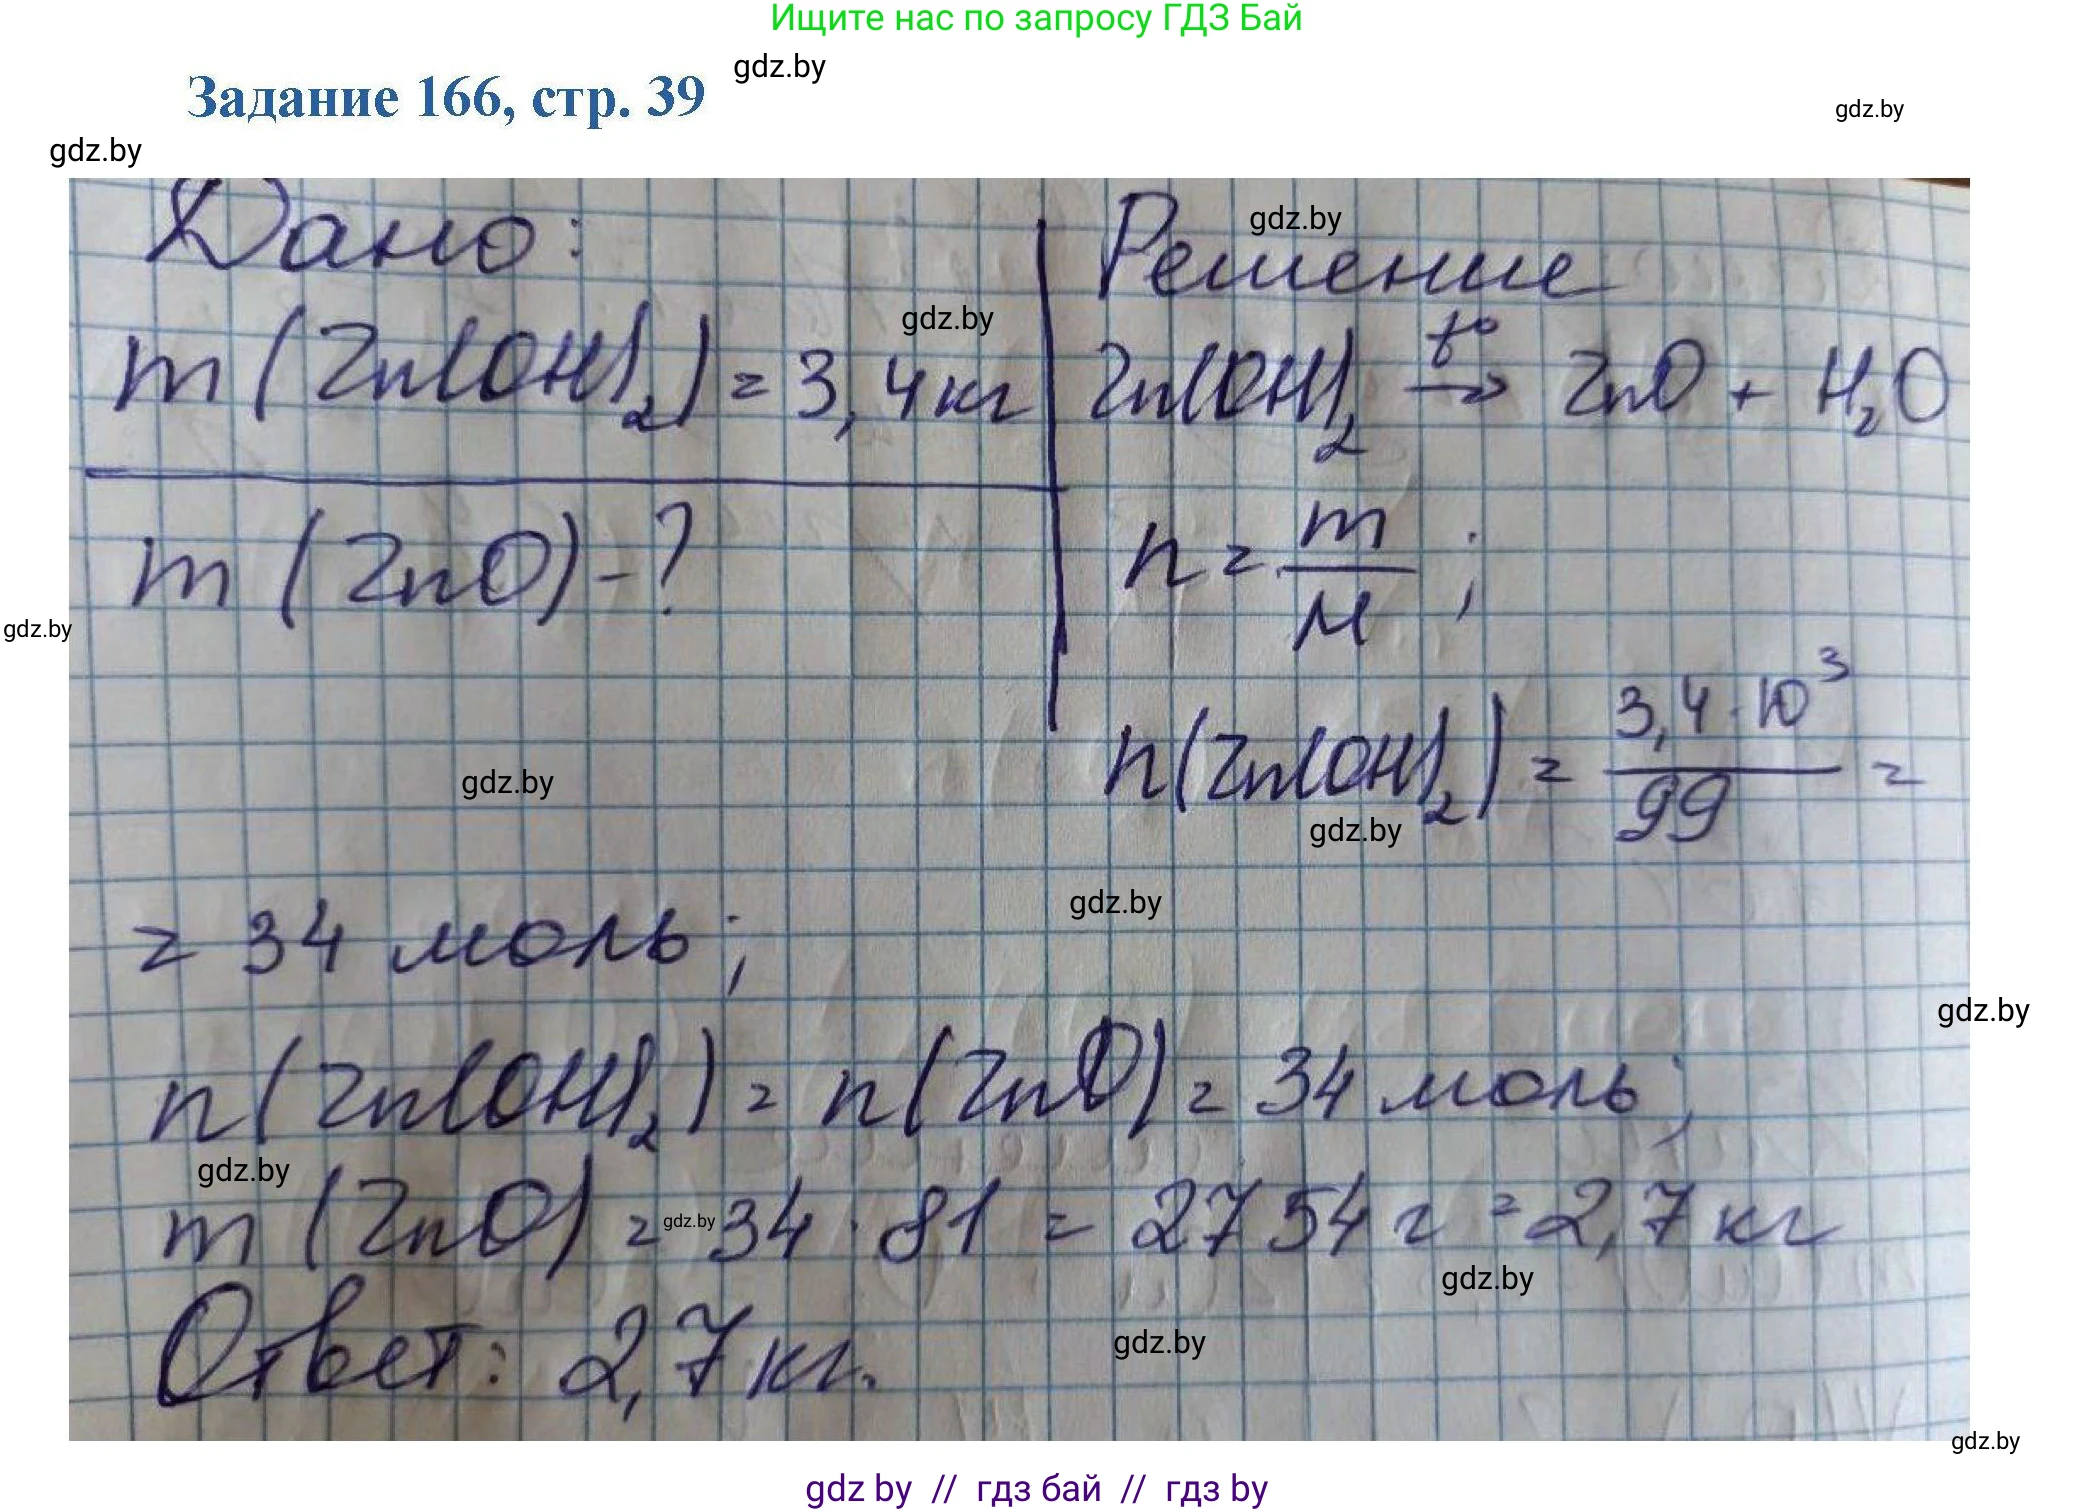 Ищите нас по запросу ГДЗ Бай
gdz.by
Задание 166, стр. 39
gdz.by
gdz.by
Дано:
m(Zn(OH)₂) = 3,4 кг
m(ZnO) - ?
Решение
gdz.by
gdz.by
Zn(OH)₂ t°→ ZnO + H₂O
n = m/M ;
gdz.by
n(Zn(OH)₂) = 3,4·10³/99 =
gdz.by
gdz.by
gdz.by
= 34 моль;
gdz.by
n(Zn(OH)₂) = n(ZnO) = 34 моль;
gdz.by
gdz.by
m(ZnO) = 34 · 81 = 2754 г = 2,7 кг
gdz.by
Ответ: 2,7 кг.
gdz.by
gdz.by
gdz by // гдз бай // гдз by